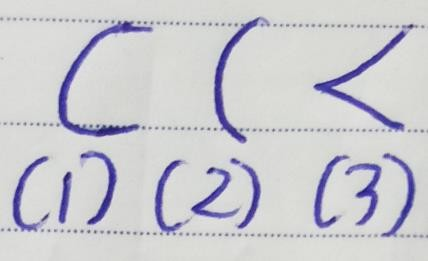 C ( <
(1) (2) (3)